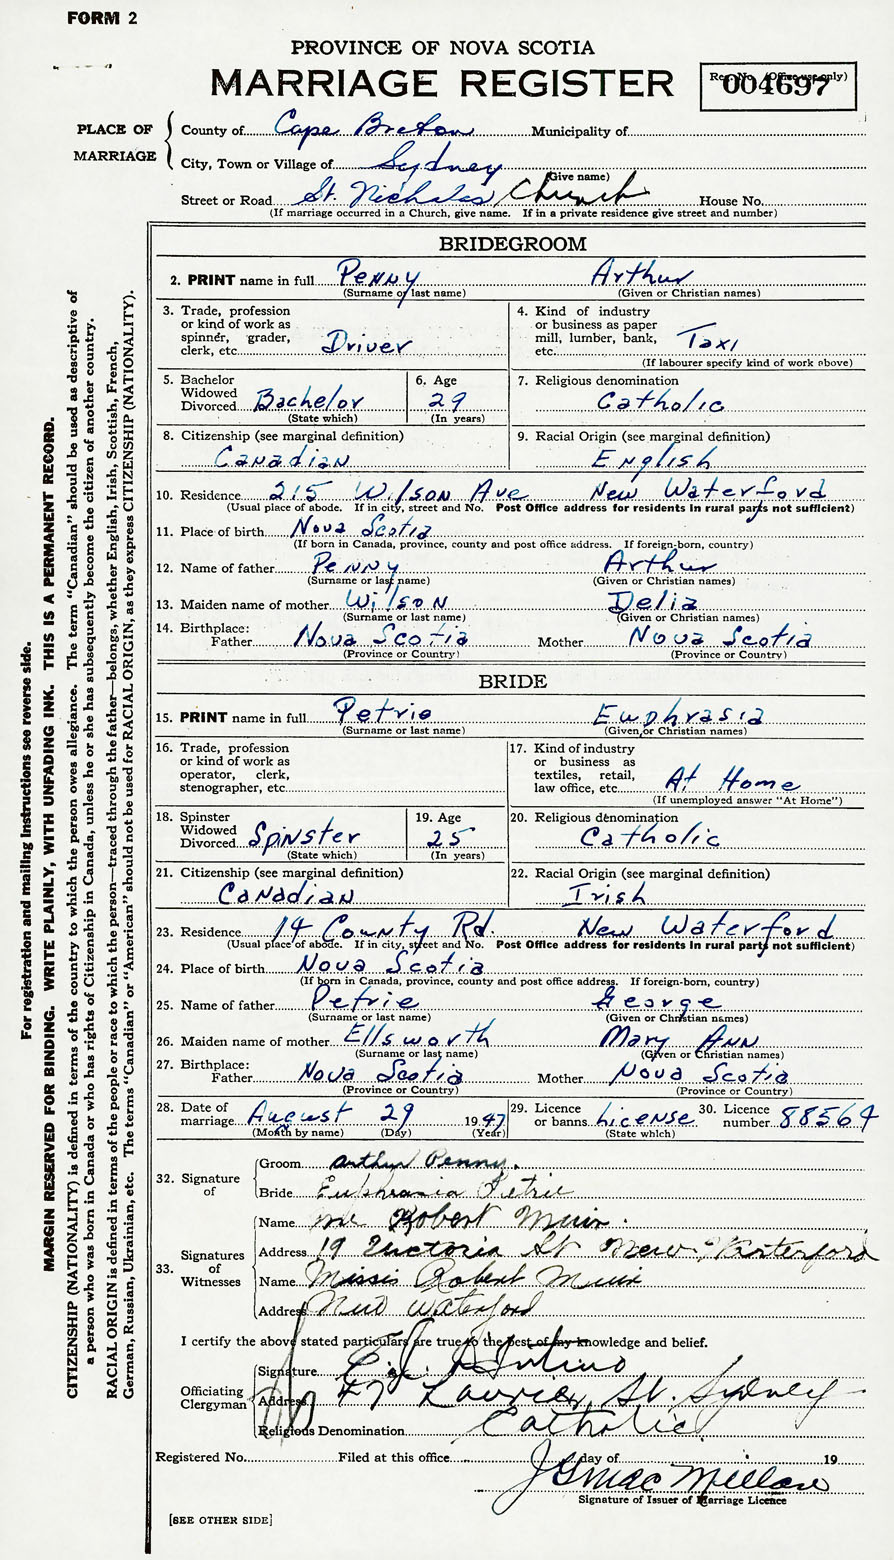 FORM 2
PROVINCE OF NOVA SCOTIA
MARRIAGE REGISTER
Reg. No. (Office use only)
004697
PLACE OF MARRIAGE
County of Cape Breton Municipality of
City, Town or Village of Sydney
(Give name)
Street or Road St. Nicholas Church House No.
(If marriage occurred in a Church, give name. If in a private residence give street and number)
BRIDEGROOM
2. PRINT name in full Penny Arthur
(Surname or last name) (Given or Christian names)
3. Trade, profession or kind of work as spinner, grader, clerk, etc. Driver
4. Kind of industry or business as paper mill, lumber, bank, etc. Taxi
(If labourer specify kind of work above)
5. Bachelor Widowed Divorced Bachelor
(State which)
6. Age 29
(In years)
7. Religious denomination Catholic
8. Citizenship (see marginal definition) Canadian
9. Racial Origin (see marginal definition) English
10. Residence 215 Wilson Ave New Waterford
(Usual place of abode. If in city, street and No. Post Office address for residents in rural parts not sufficient)
11. Place of birth Nova Scotia
(If born in Canada, province, county and post office address. If foreign-born, country)
12. Name of father Penny Arthur
(Surname or last name) (Given or Christian names)
13. Maiden name of mother Wilson Delia
(Surname or last name) (Given or Christian names)
14. Birthplace: Father Nova Scotia Mother Nova Scotia
(Province or Country) (Province or Country)
BRIDE
15. PRINT name in full Petrie Euphrasia
(Surname or last name) (Given or Christian names)
16. Trade, profession or kind of work as operator, clerk, stenographer, etc.
17. Kind of industry or business as textiles, retail, law office, etc. At Home
(If unemployed answer "At Home")
18. Spinster Widowed Divorced Spinster
(State which)
19. Age 25
(In years)
20. Religious denomination Catholic
21. Citizenship (see marginal definition) Canadian
22. Racial Origin (see marginal definition) Irish
23. Residence 14 County Rd. New Waterford
(Usual place of abode. If in city, street and No. Post Office address for residents in rural parts not sufficient)
24. Place of birth Nova Scotia
(If born in Canada, province, county and post office address. If foreign-born, country)
25. Name of father Petrie George
(Surname or last name) (Given or Christian names)
26. Maiden name of mother Ellsworth Mary Ann
(Surname or last name) (Given or Christian names)
27. Birthplace: Father Nova Scotia Mother Nova Scotia
(Province or Country) (Province or Country)
28. Date of marriage August 29 1947
(Month by name) (Day) (Year)
29. Licence or banns License
(State which)
30. Licence number 88564
32. Signature of
Groom Arthur Penny.
Bride Euphrasia Petrie
33. Signatures of Witnesses
Name Mr Robert Muir.
Address 19 Victoria St New Waterford
Name Missis Robert Muir
Address New Waterford
I certify the above stated particulars are true to the best of my knowledge and belief.
Officiating Clergyman
Signature
Address 47 Laurier St. Sydney
Religious Denomination Catholic
Registered No. Filed at this office day of 19
J G MacMillan
Signature of Issuer of Marriage Licence
[SEE OTHER SIDE]
For registration and mailing instructions see reverse side.
MARGIN RESERVED FOR BINDING. WRITE PLAINLY, WITH UNFADING INK. THIS IS A PERMANENT RECORD.
CITIZENSHIP (NATIONALITY) is defined in terms of the country to which the person owes allegiance. The term "Canadian" should be used as descriptive of
a person who was born in Canada or who has rights of Citizenship in Canada, unless he or she has subsequently become the citizen of another country.
RACIAL ORIGIN is defined in terms of the people or race to which the person—traced through the father—belongs, whether English, Irish, Scottish, French,
German, Russian, Ukrainian, etc. The terms "Canadian" or "American" should not be used for RACIAL ORIGIN, as they express CITIZENSHIP (NATIONALITY).